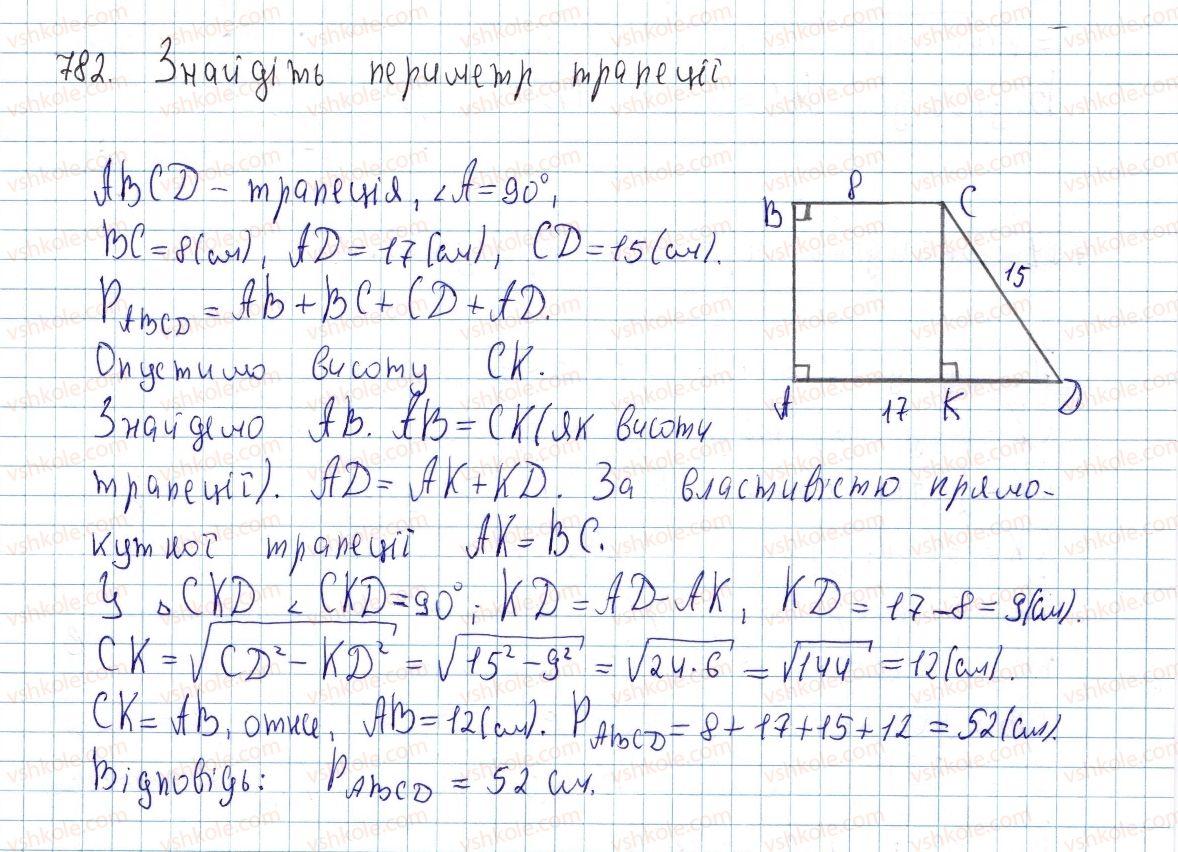 782. Знайдіть периметр трапеції
ABCD – трапеція, ∠A = 90°,
BC = 8 (см), AD = 17 (см), CD = 15 (см).
P_ABCD = AB + BC + CD + AD.
Опустимо висоту CK.
Знайдемо AB. AB = CK (як висоти
трапеції). AD = AK + KD. За властивістю прямо-
кутної трапеції AK = BC.
У △CKD ∠CKD = 90°; KD = AD – AK, KD = 17 – 8 = 9 (см).
CK = √(CD² – KD²) = √(15² – 9²) = √(24·6) = √144 = 12 (см).
CK = AB, отже, AB = 12 (см). P_ABCD = 8 + 17 + 15 + 12 = 52 (см).
Відповідь: P_ABCD = 52 см.
B 8 C
15
A 17 K D
vshkole.com